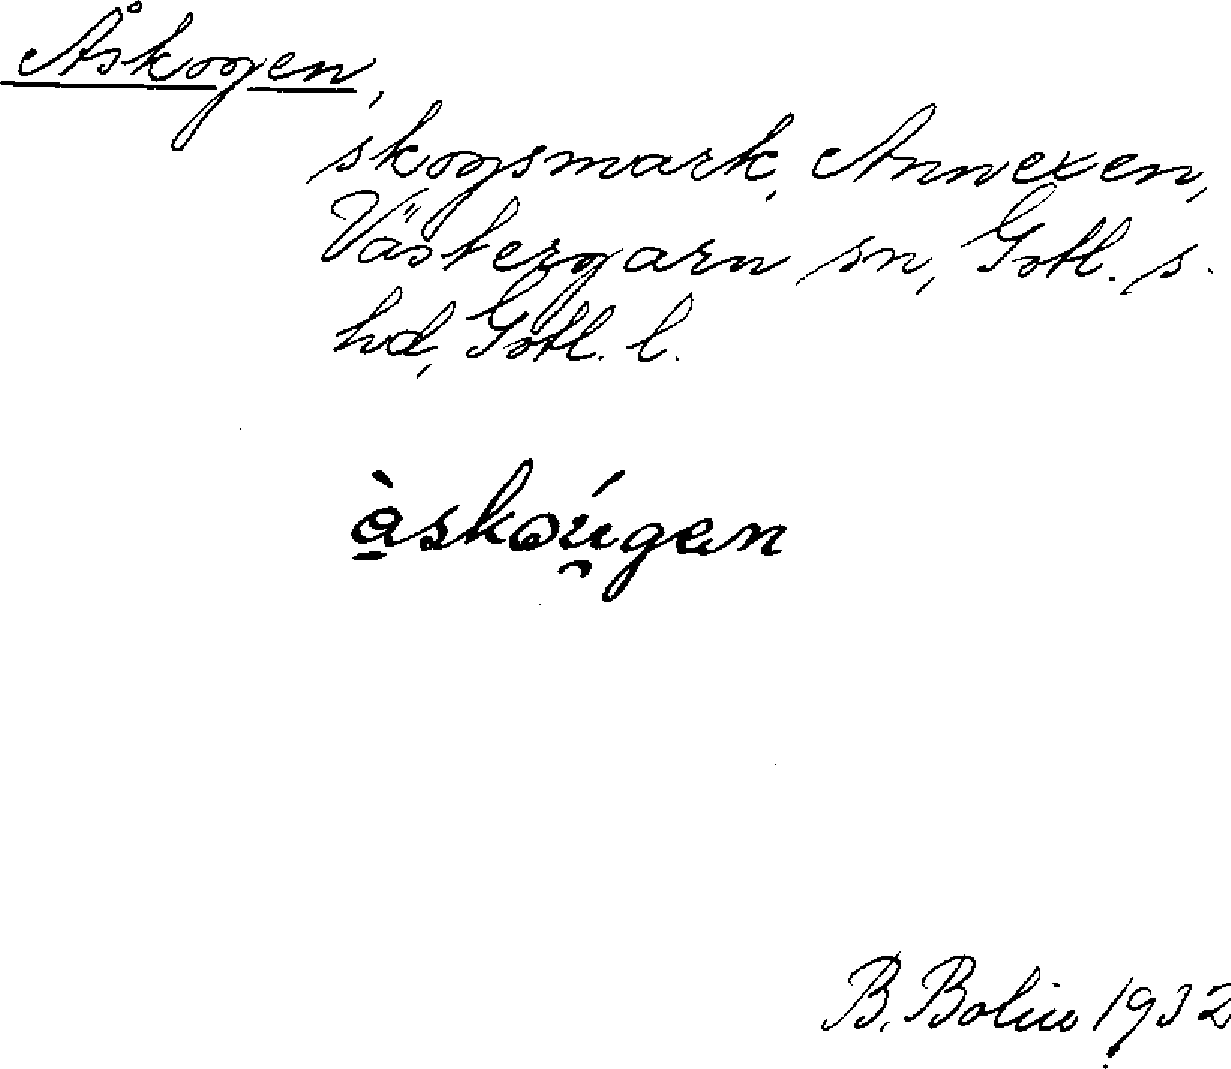 Åskogen,
skogsmark, Annexen,
Västergarn sn, Gotl. s.
hd, Gotl. l.
àskoúgen
B. Bolin 1932